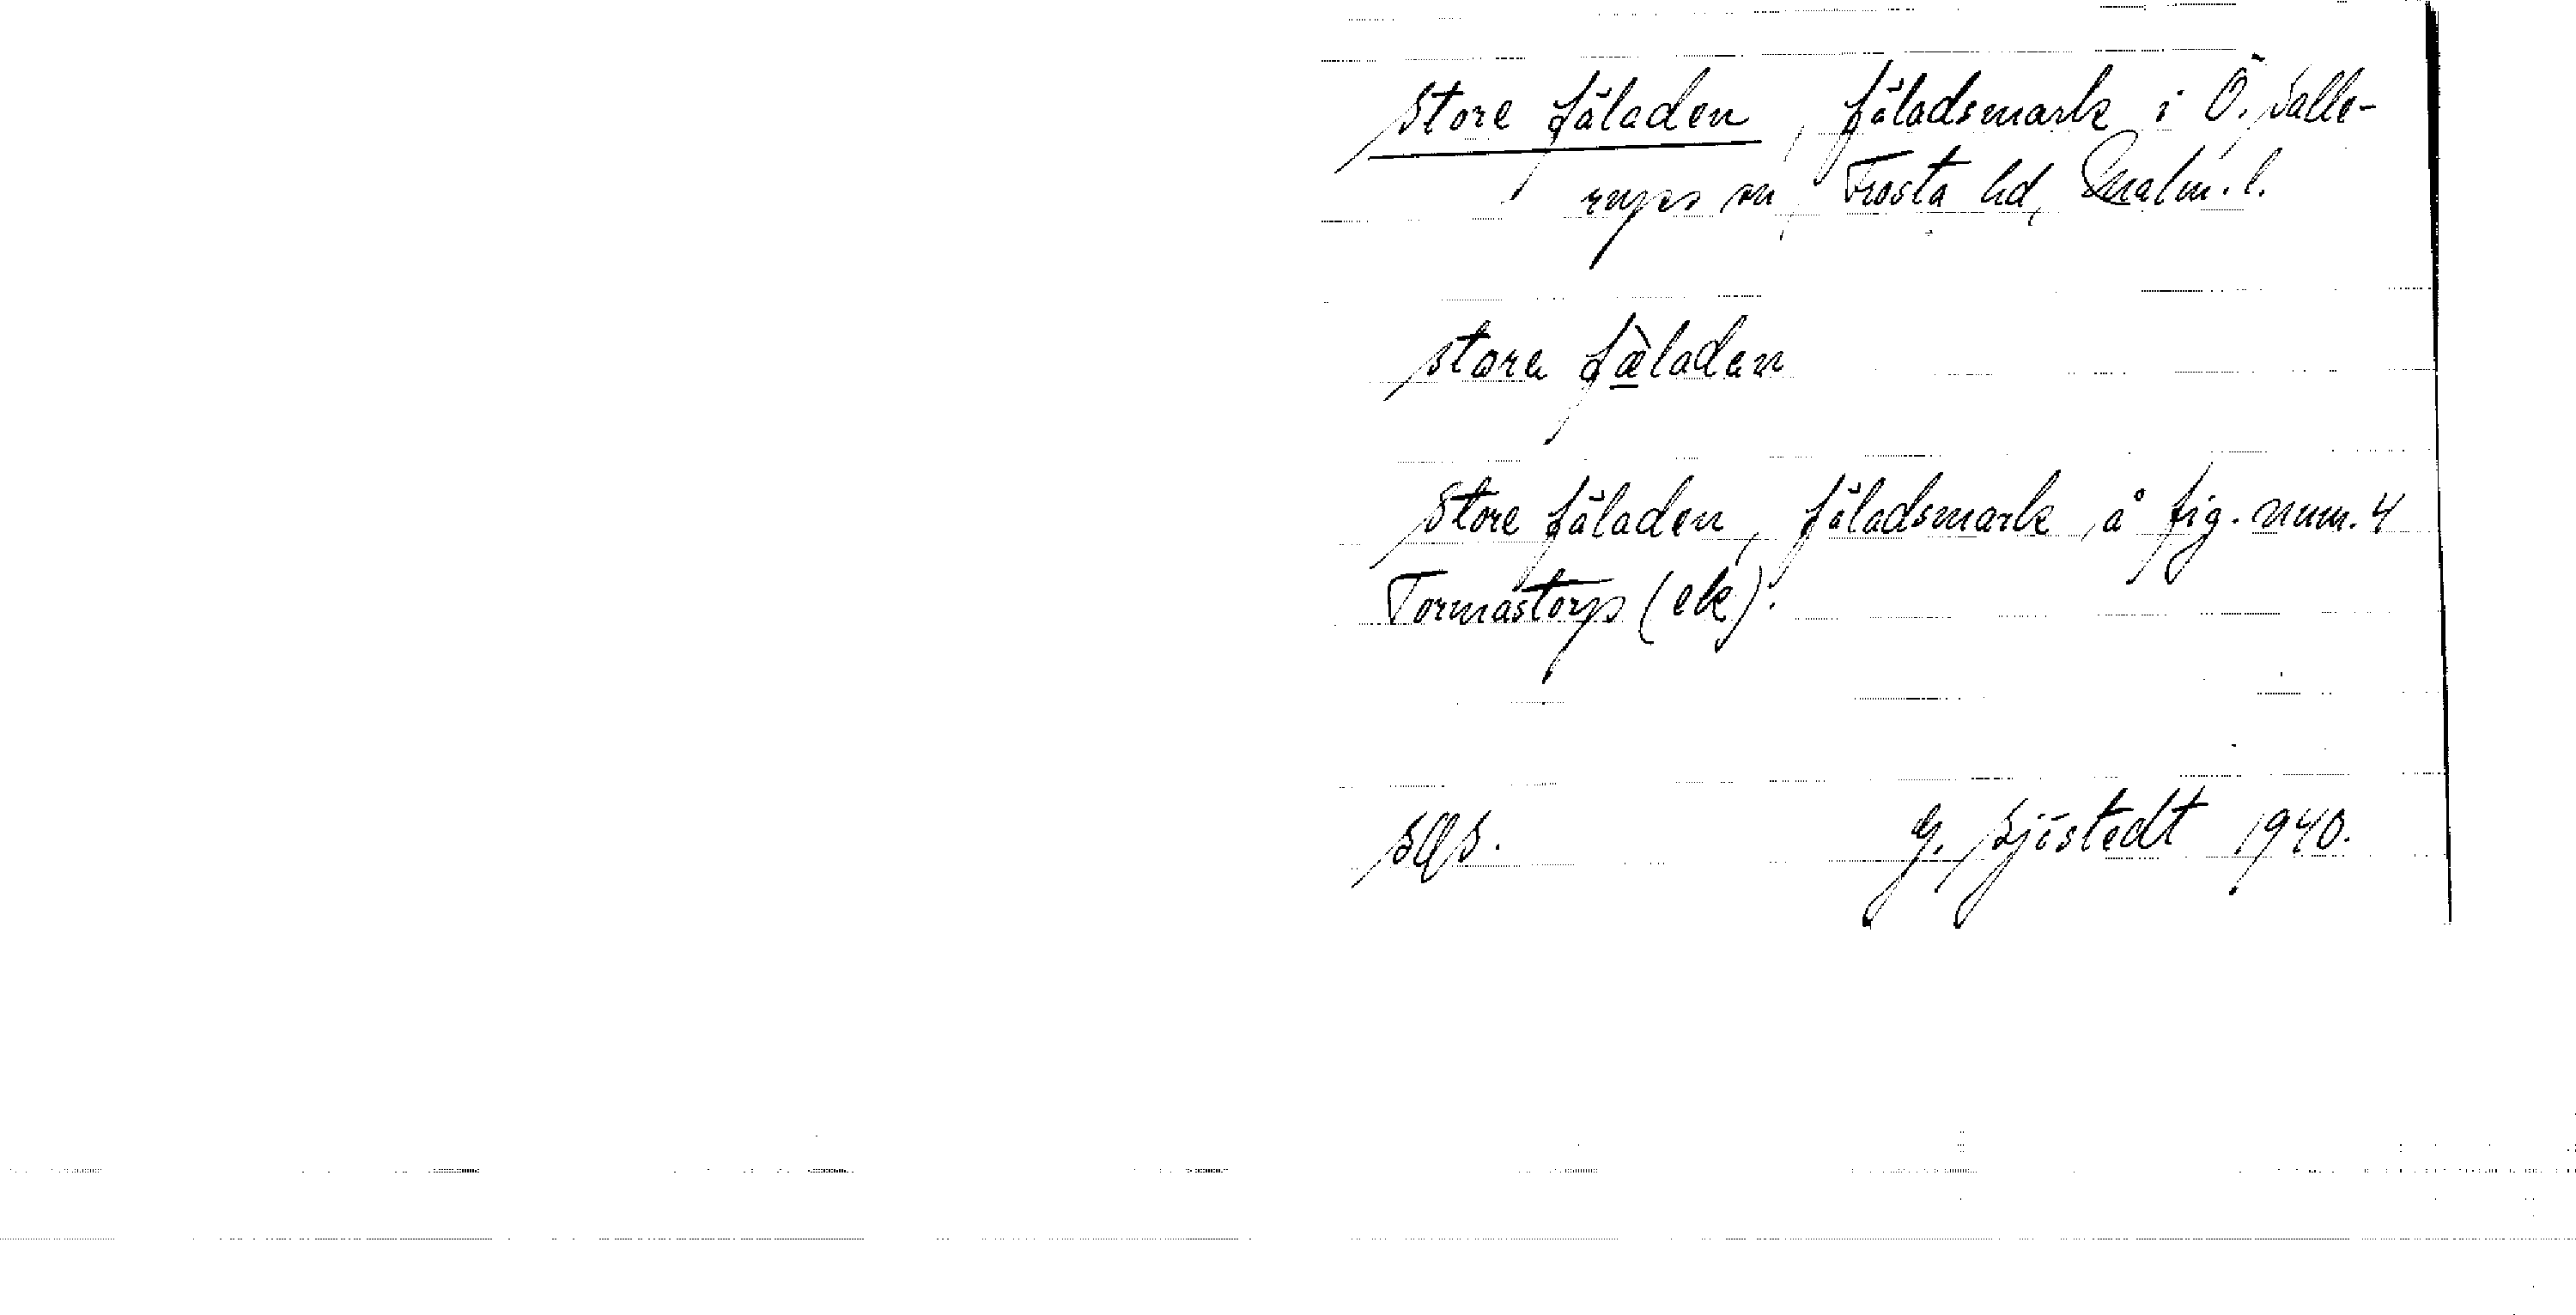 Store fäladen, fäladsmark i Ö. Salle-
rups sn, Frosta hd, Malm. l.
stora fæ̀ladan
Store fäladen, fäladsmark å fig. num. 4
Tormastorp (ek).
SOS.
G. Sjöstedt 1940.